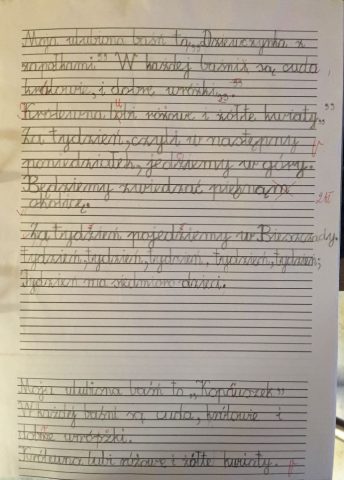 Moja ulubiona baśń to „Dziewczynka z
zapałkami" W każdej baśni są cuda
królowie, i dobre wróżki.
Królewna lubi różowe i żółte kwiaty.
Za tydzień, czyli w następny
poniedziałek, jedziemy w góry.
Będziemy zwiedzać piękną
okolicę.
Za tydzień pojedziemy w Bieszczady.
tydzień, tydzień, tydzień, tydzień, tydzień,
Tydzień ma siedmioro dzieci.
Moja ulubiona baśń to „Kopciuszek"
W każdej baśni są cuda, królowie i
dobre wróżki.
Królewna lubi różowe i żółte kwiaty.